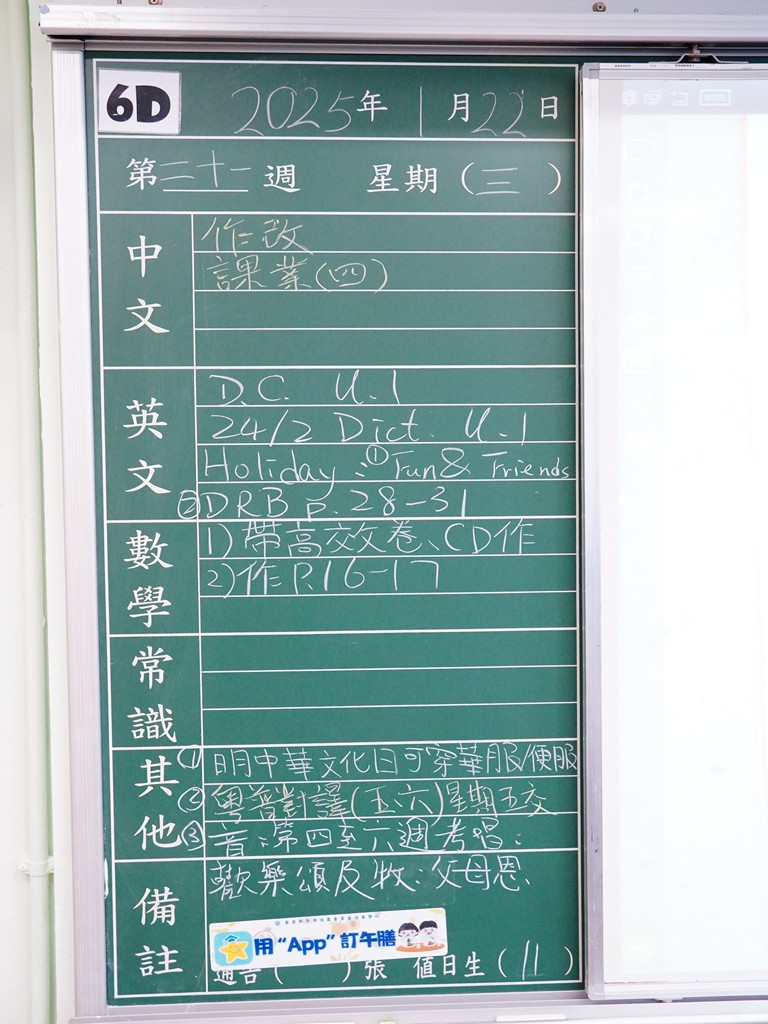 6D 2025年1月22日
第二十一週 星期(三)
中文
作改
課業(四)
英文
D.C. U.1
24/2 Dict. U.1
Holiday: ① Fun & Friends
② DRB p.28-31
數學
1) 帶高效卷、CD作
2) 作P.16-17
常識
其他
① 明中華文化日可穿華服/便服
② 粵普對譯(五、六)星期五交
③ 音:第四至六週考唱:
備註
歡樂頌及牧:父母恩
用“App”訂午膳
通告( )張 值日生(11)